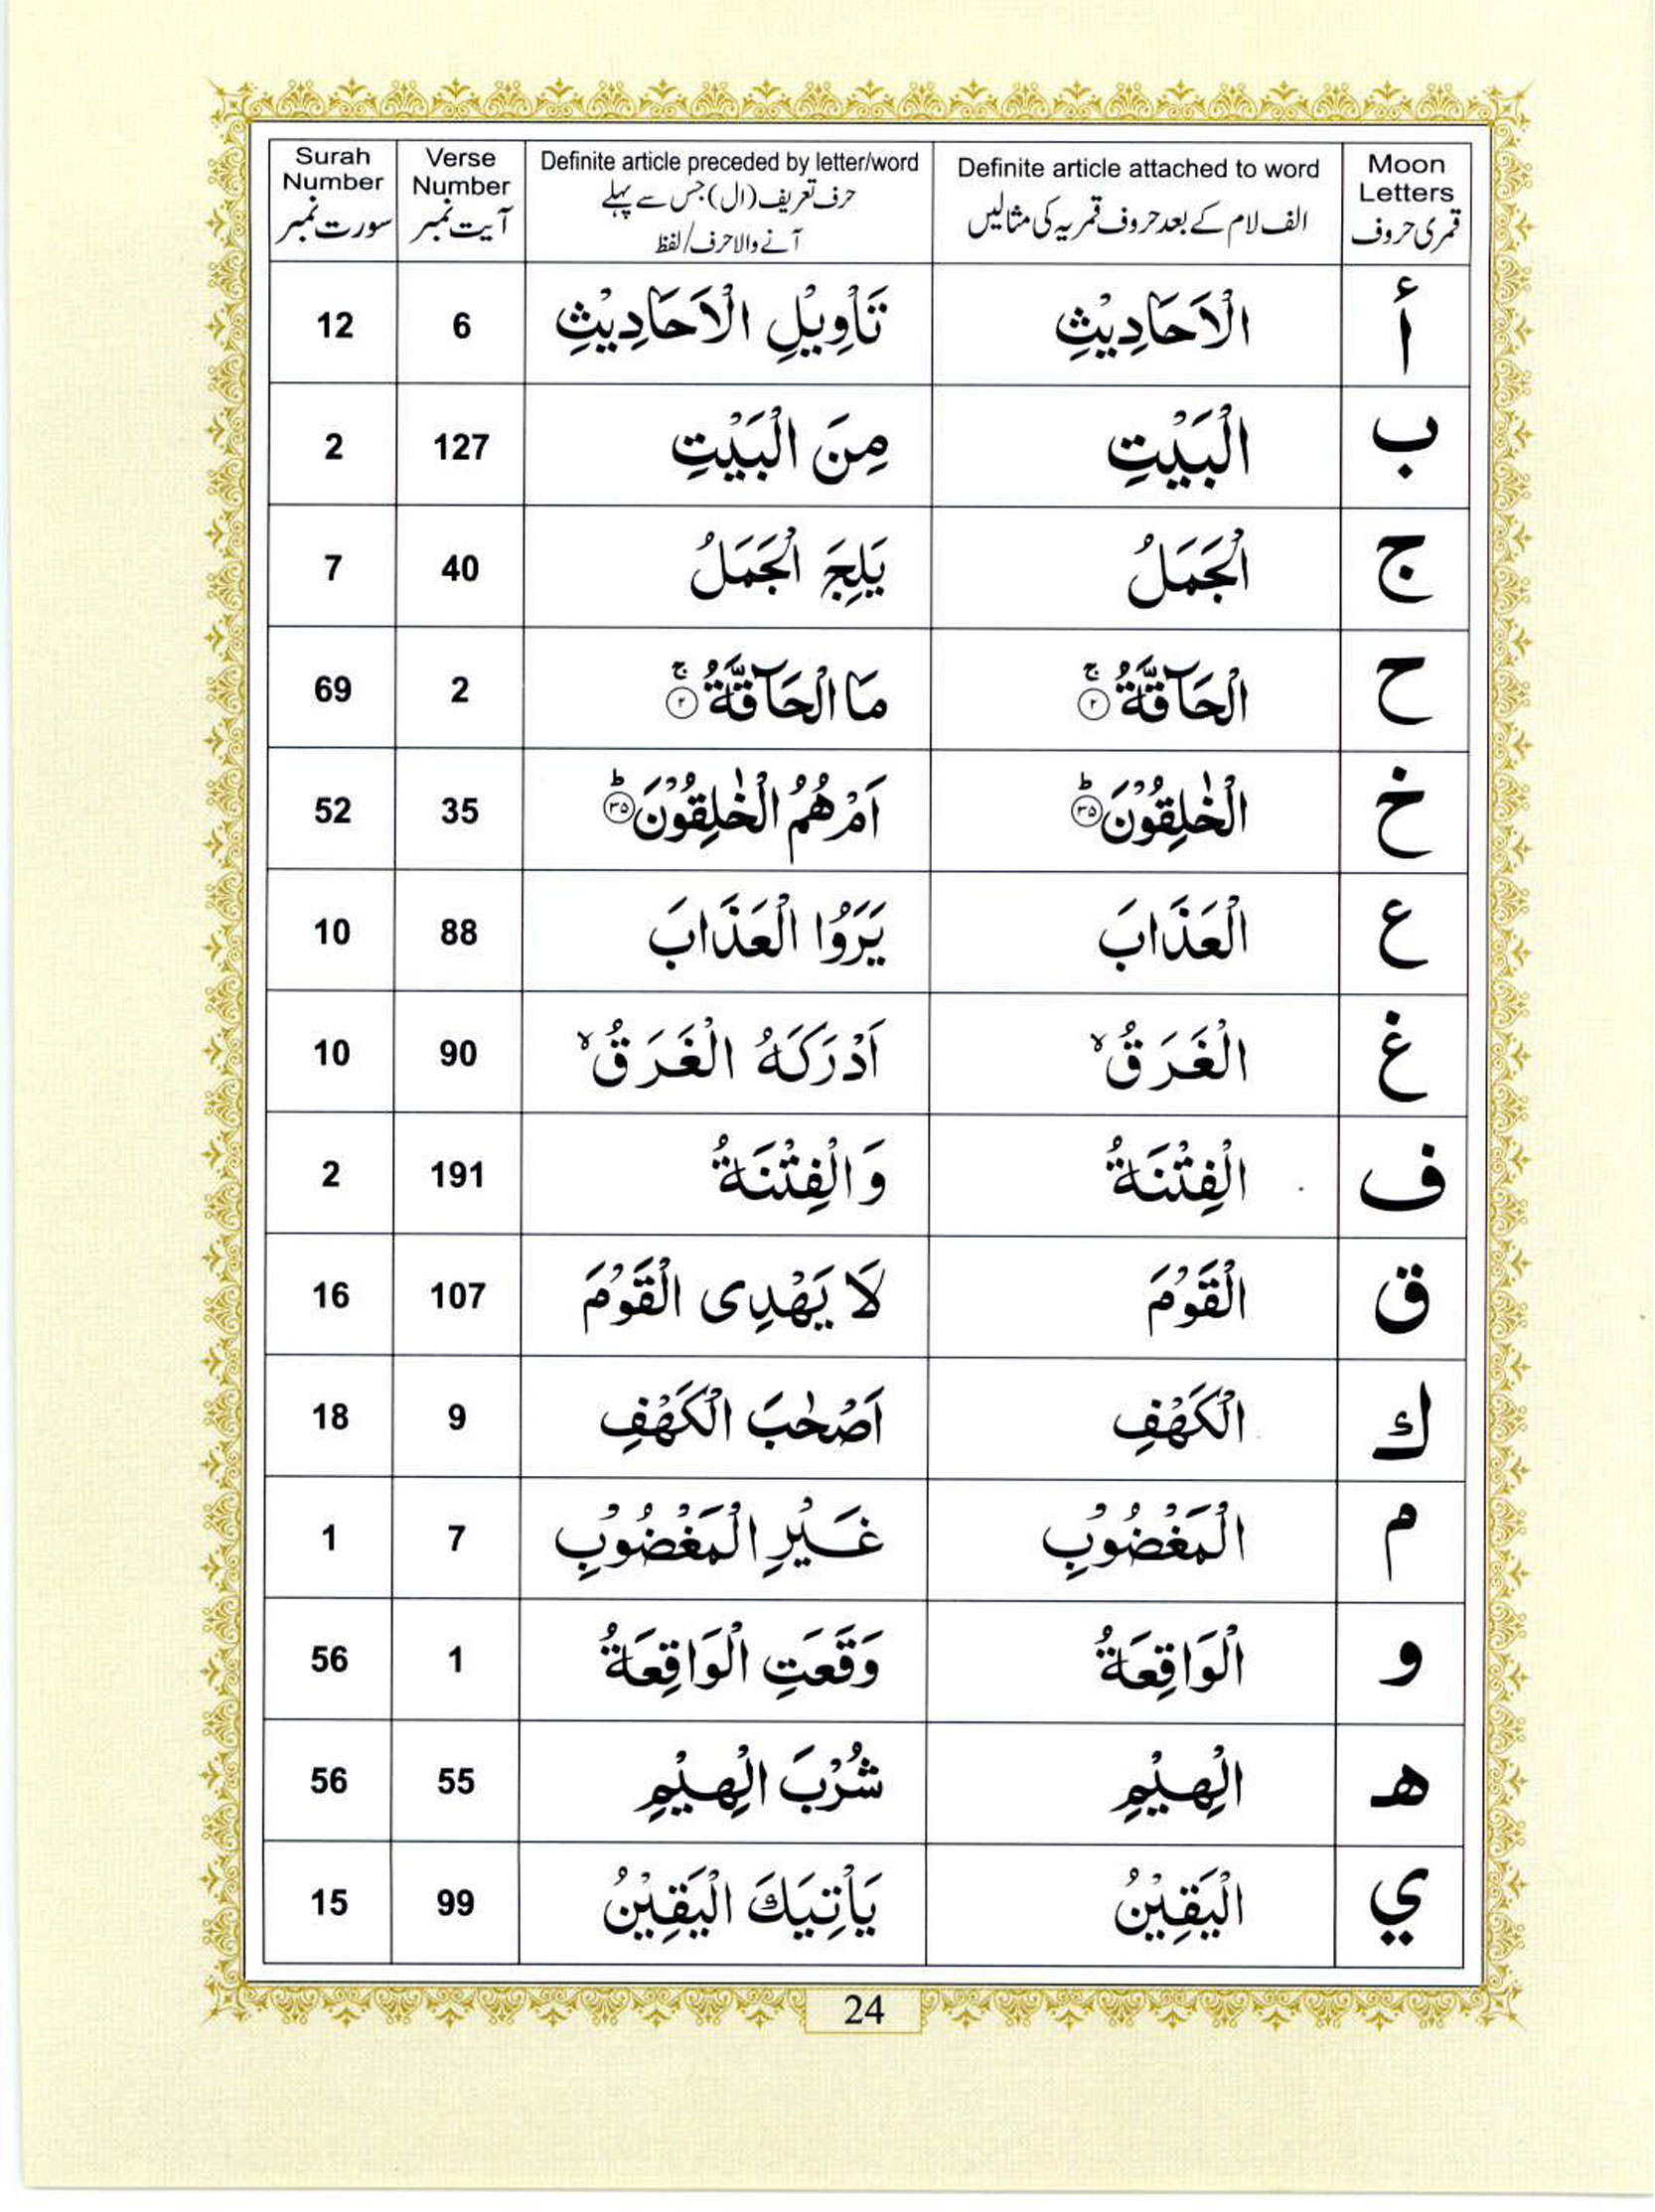 Moon Letters قمری حروف | Definite article attached to word الف لام کے بعد حروف قمریہ کی مثالیں | Definite article preceded by letter/word حرف تعریف (ال) جس سے پہلے آنے والا حرف/لفظ | Verse Number آیت نمبر | Surah Number سورت نمبر
أ | الْاَحَادِيْثِ | تَأْوِيْلِ الْاَحَادِيْثِ | 6 | 12
ب | الْبَيْتِ | مِنَ الْبَيْتِ | 127 | 2
ج | الْجَمَلُ | يَلِجَ الْجَمَلُ | 40 | 7
ح | الْحَآقَّةُ ۚ ۲ | مَا الْحَآقَّةُ ۚ ۲ | 2 | 69
خ | الْخٰلِقُوْنَ ؕ ۳۵ | اَمْ هُمُ الْخٰلِقُوْنَ ؕ ۳۵ | 35 | 52
ع | الْعَذَابَ | يَرَوُا الْعَذَابَ | 88 | 10
غ | الْغَرَقُ ۙ | اَدْرَكَهُ الْغَرَقُ ۙ | 90 | 10
ف | الْفِتْنَةُ | وَالْفِتْنَةُ | 191 | 2
ق | الْقَوْمَ | لَا يَهْدِى الْقَوْمَ | 107 | 16
ك | الْكَهْفِ | اَصْحٰبَ الْكَهْفِ | 9 | 18
م | الْمَغْضُوْبِ | غَيْرِ الْمَغْضُوْبِ | 7 | 1
و | الْوَاقِعَةُ | وَقَعَتِ الْوَاقِعَةُ | 1 | 56
هـ | الْهِيْمِ | شُرْبَ الْهِيْمِ | 55 | 56
ي | الْيَقِيْنُ | يَأْتِيَكَ الْيَقِيْنُ | 99 | 15
24